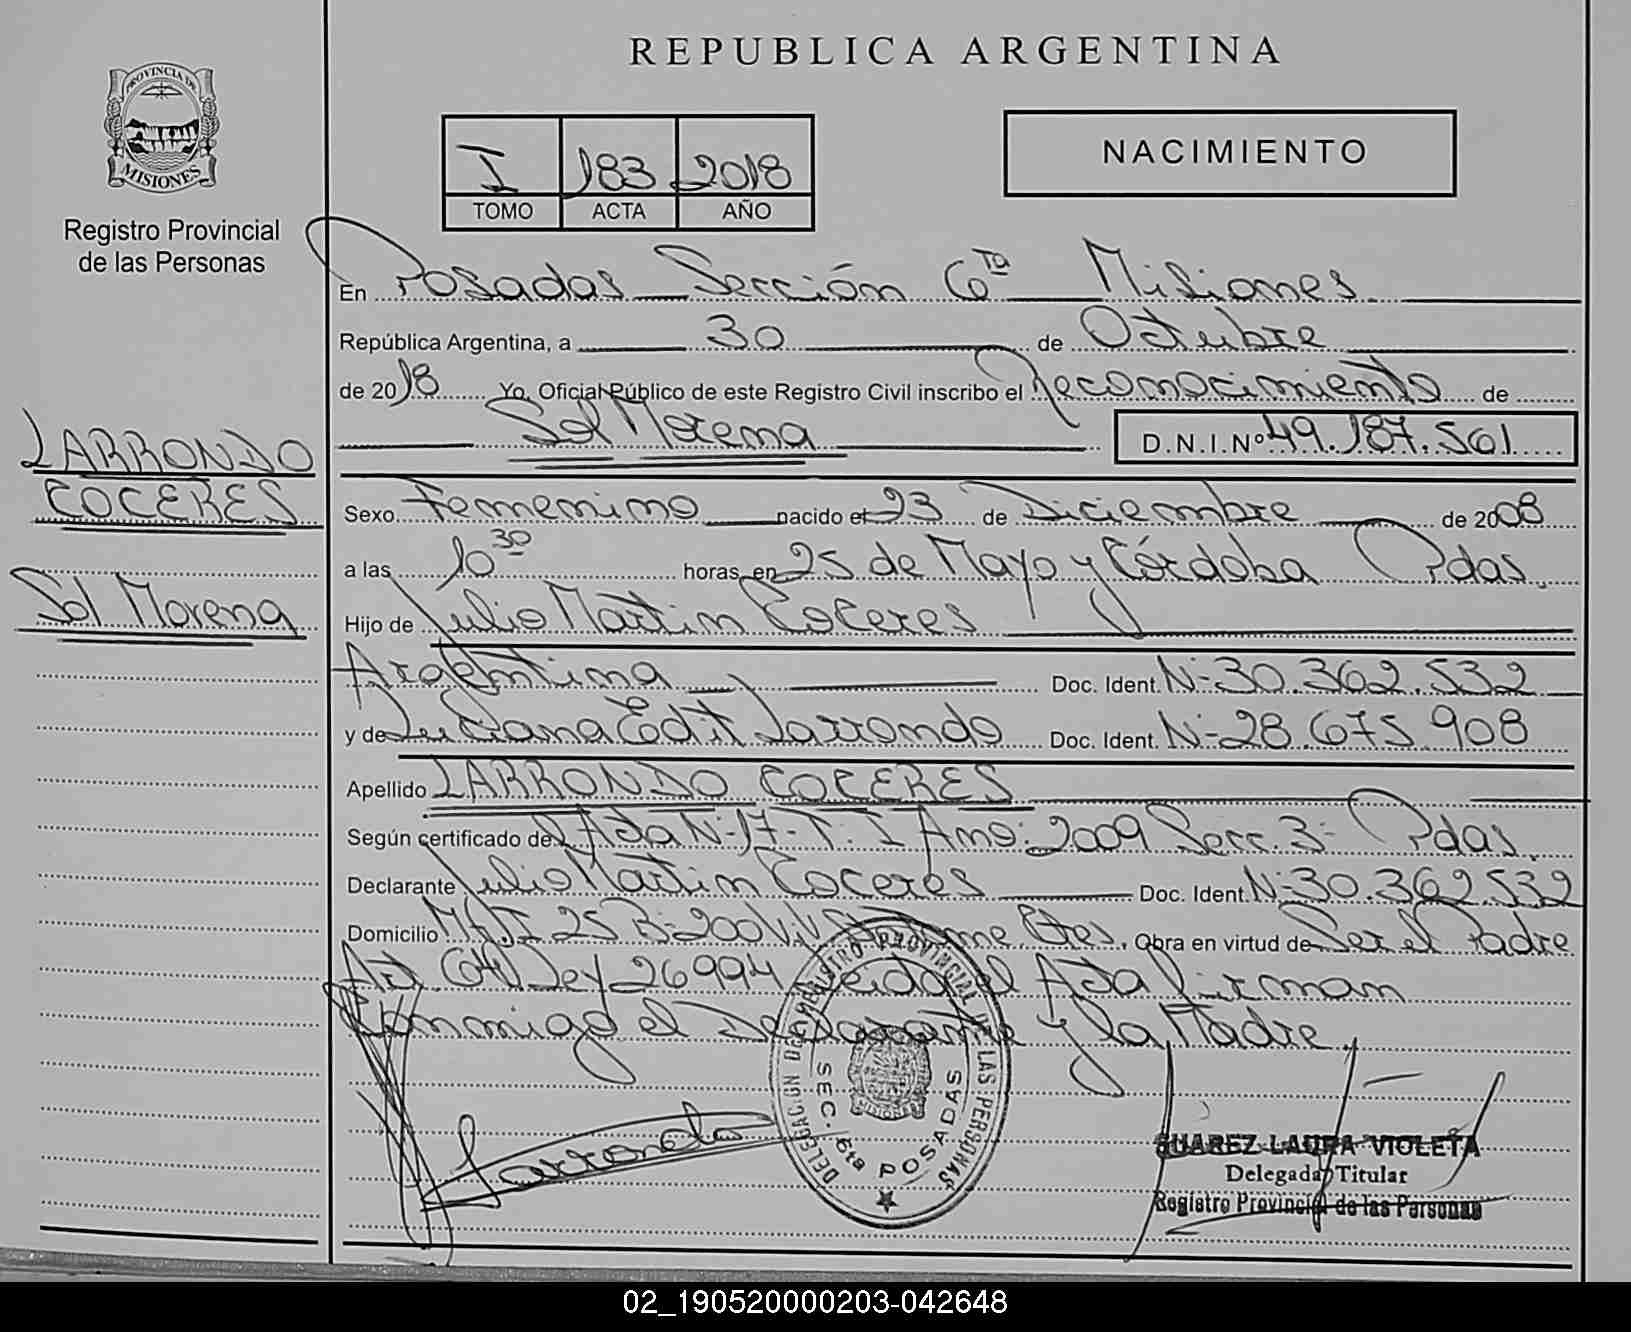 REPUBLICA ARGENTINA
PROVINCIA DE
MISIONES
Registro Provincial
de las Personas
I 183 2018
TOMO ACTA AÑO
NACIMIENTO
En Posadas Sección 6ta Misiones
República Argentina, a 30 de Octubre
de 2018 Yo, Oficial Público de este Registro Civil inscribo el Reconocimiento de
Sol Morena D.N.I.Nº 49.187.561
LARRONDO
COCERES
Sol Morena
Sexo Femenino nacido el 23 de Diciembre de 2008
a las 10 30 horas, en 25 de Mayo y Córdoba Pdas.
Hijo de Julio Martin Coceres
Argentina Doc. Ident. Nº 30.362.532
y de Luciana Edit Larrondo Doc. Ident. Nº 28.675.908
Apellido LARRONDO COCERES
Según certificado de Acta Nº 17-T. I Año: 2009 Secc. 3º Pdas.
Declarante Julio Martin Coceres Doc. Ident. Nº 30.362.532
Domicilio 25 200 Obra en virtud de Ser el Padre
Art. Ley 26994 Leida el Acta firman
Conmigo el Declarante y la Madre.
Larrondo
DELEGACION DEL REGISTRO PROVINCIAL DE LAS PERSONAS
SEC. 6ta POSADAS
MISIONES
SUAREZ LAURA VIOLETA
Delegada Titular
Registro Provincial de las Personas
02_190520000203-042648